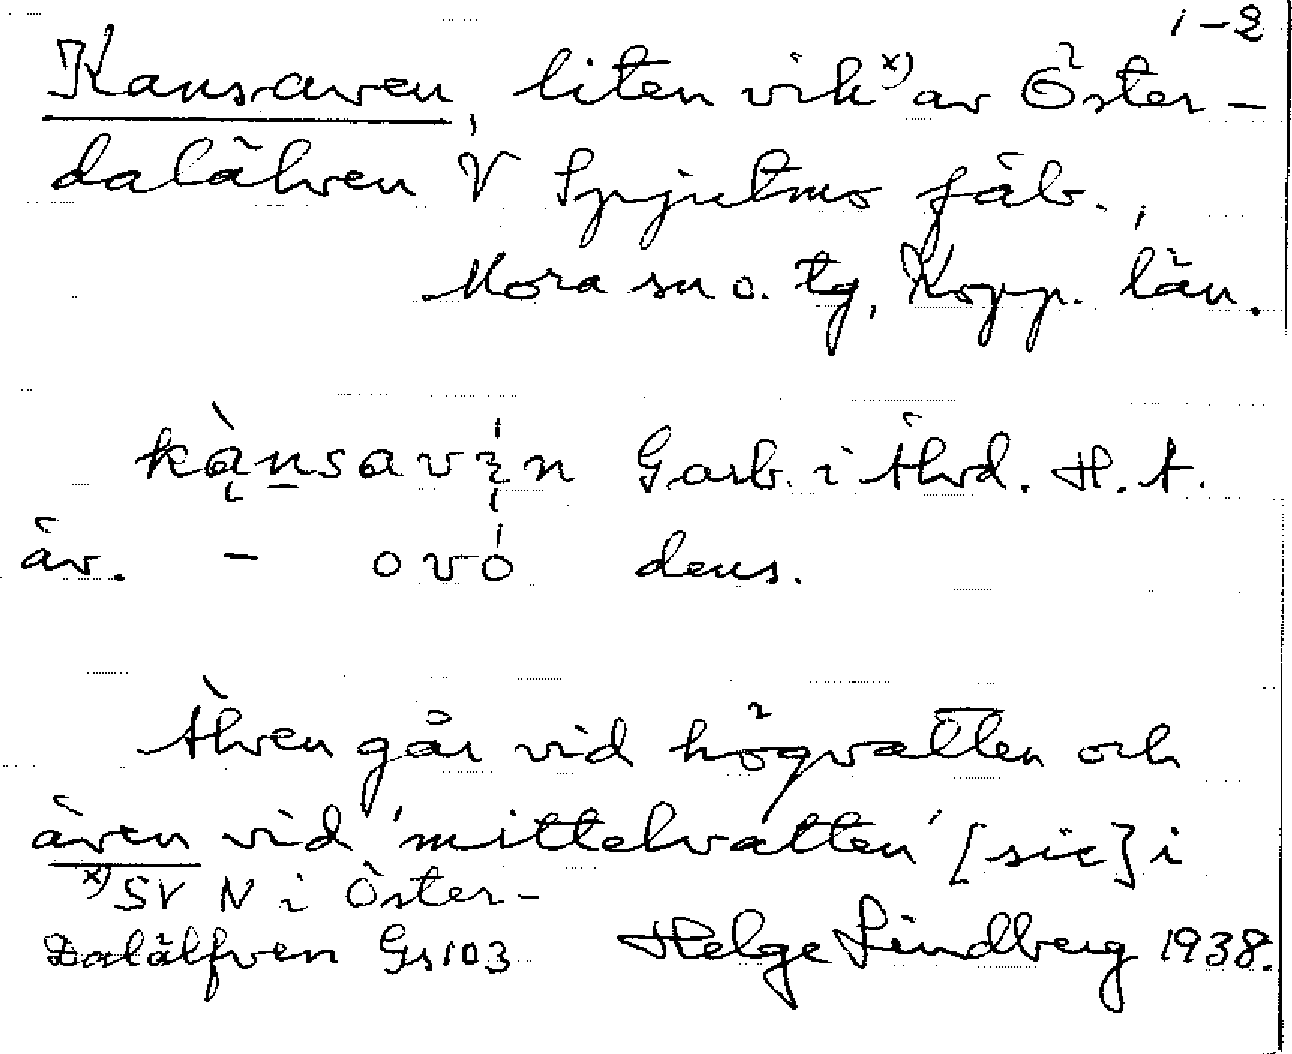 1-2
Kansaven, liten vik x) av Öster-
dalälven V Spjutmo fäb.,
Mora sn o. tg, Kopp. län.
kànsavən Garb. i Älvd. H. A.
äv. - ovó dens.
Älven går vid högvatten och
även vid 'mittelvatten' [sic] i
x) SV N i Öster-
Dalälfven Gs 103 Helge Lindberg 1938.